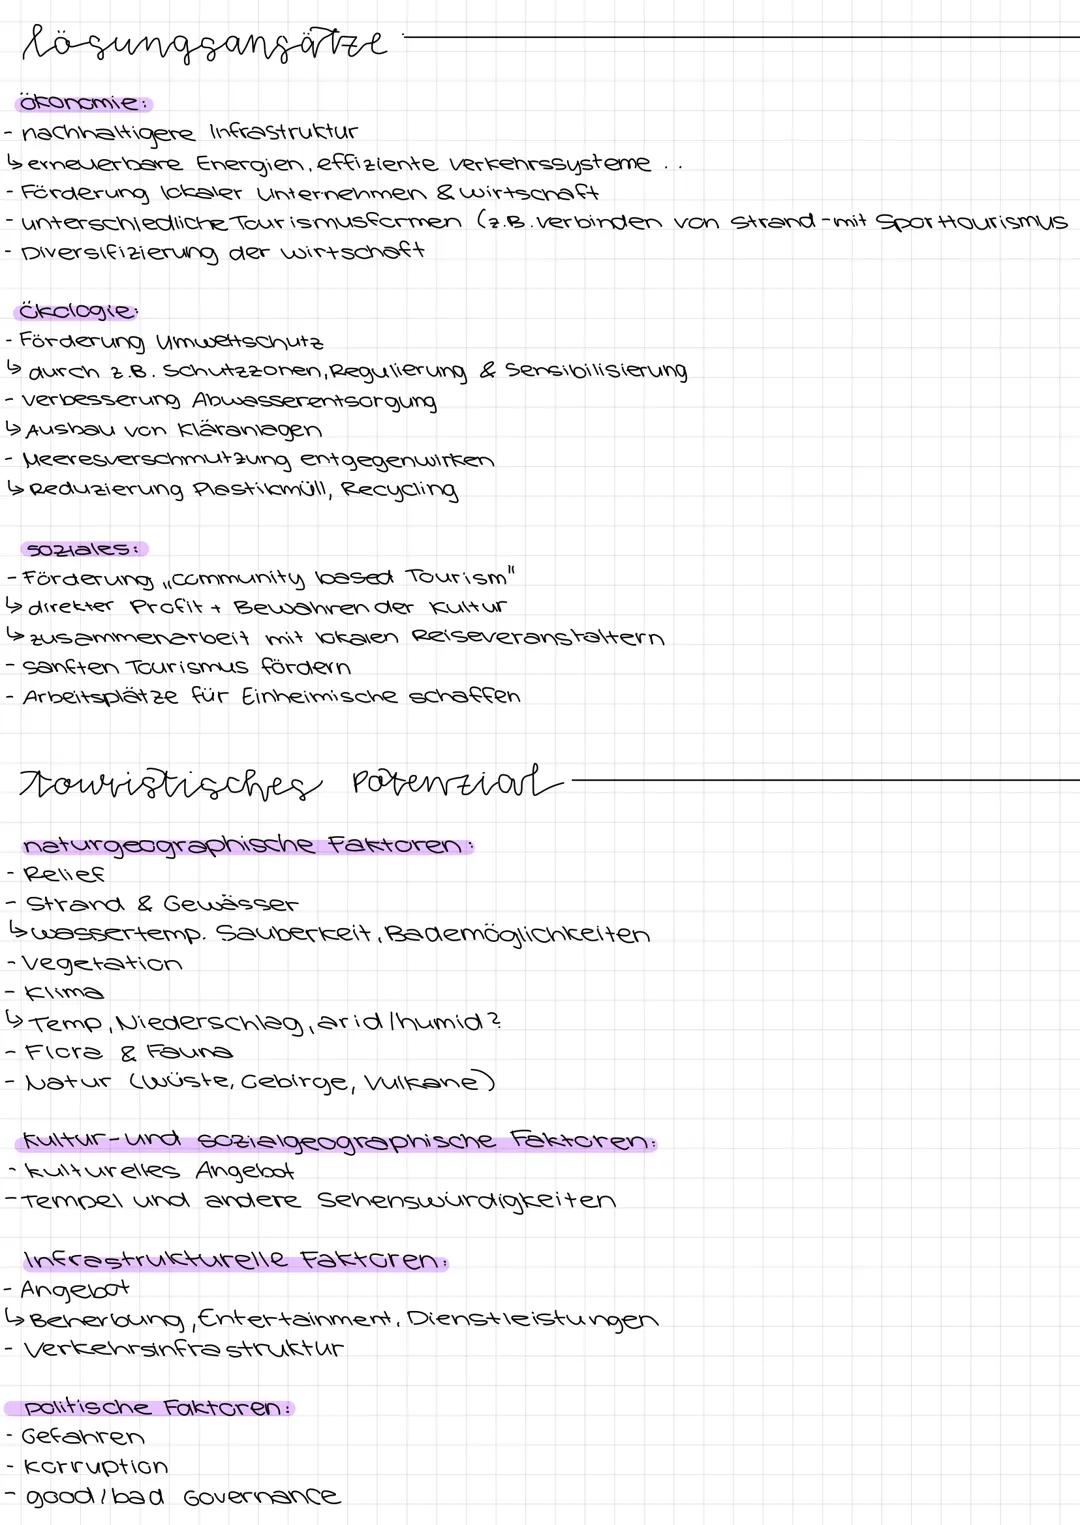 lösungsansätze
ökonomie:
- nachhaltigere Infrastruktur
↳ erneuerbare Energien, effiziente Verkehrssysteme ..
- Förderung lokaler Unternehmen & Wirtschaft
- unterschiedliche Tourismusformen (z.B. verbinden von Strand-mit Sporttourismus
- Diversifizierung der Wirtschaft
Ökologie:
- Förderung Umweltschutz
↳ durch z.B. Schutzzonen, Regulierung & Sensibilisierung
- Verbesserung Abwasserentsorgung
↳ Ausbau von Kläranlagen
- Meeresverschmutzung entgegenwirken
↳ Reduzierung Plastikmüll, Recycling
soziales:
- Förderung „community based Tourism"
↳ direkter Profit + Bewahren der Kultur
↳ zusammenarbeit mit lokalen Reiseveranstaltern
- sanften Tourismus fördern
- Arbeitsplätze für Einheimische schaffen
touristisches Potenzial
naturgeographische Faktoren:
- Relief
- Strand & Gewässer
↳ wassertemp. Sauberkeit, Bademöglichkeiten
- Vegetation
- Klima
↳ Temp, Niederschlag, arid/humid?
- Flora & Fauna
- Natur (Wüste, Gebirge, Vulkane)
kultur-und sozialgeographische Faktoren:
- kulturelles Angebot
- Tempel und andere Sehenswürdigkeiten
Infrastrukturelle Faktoren:
- Angebot
↳ Beherbung, Entertainment, Dienstleistungen
- Verkehrsinfrastruktur
politische Faktoren:
- Gefahren
- Korruption
- good/bad Governance